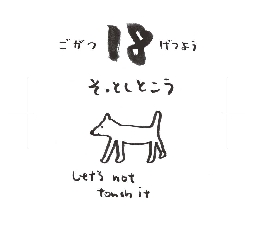 ごがつ 18 げつよう
そっとしとこう
Let's not
touch it